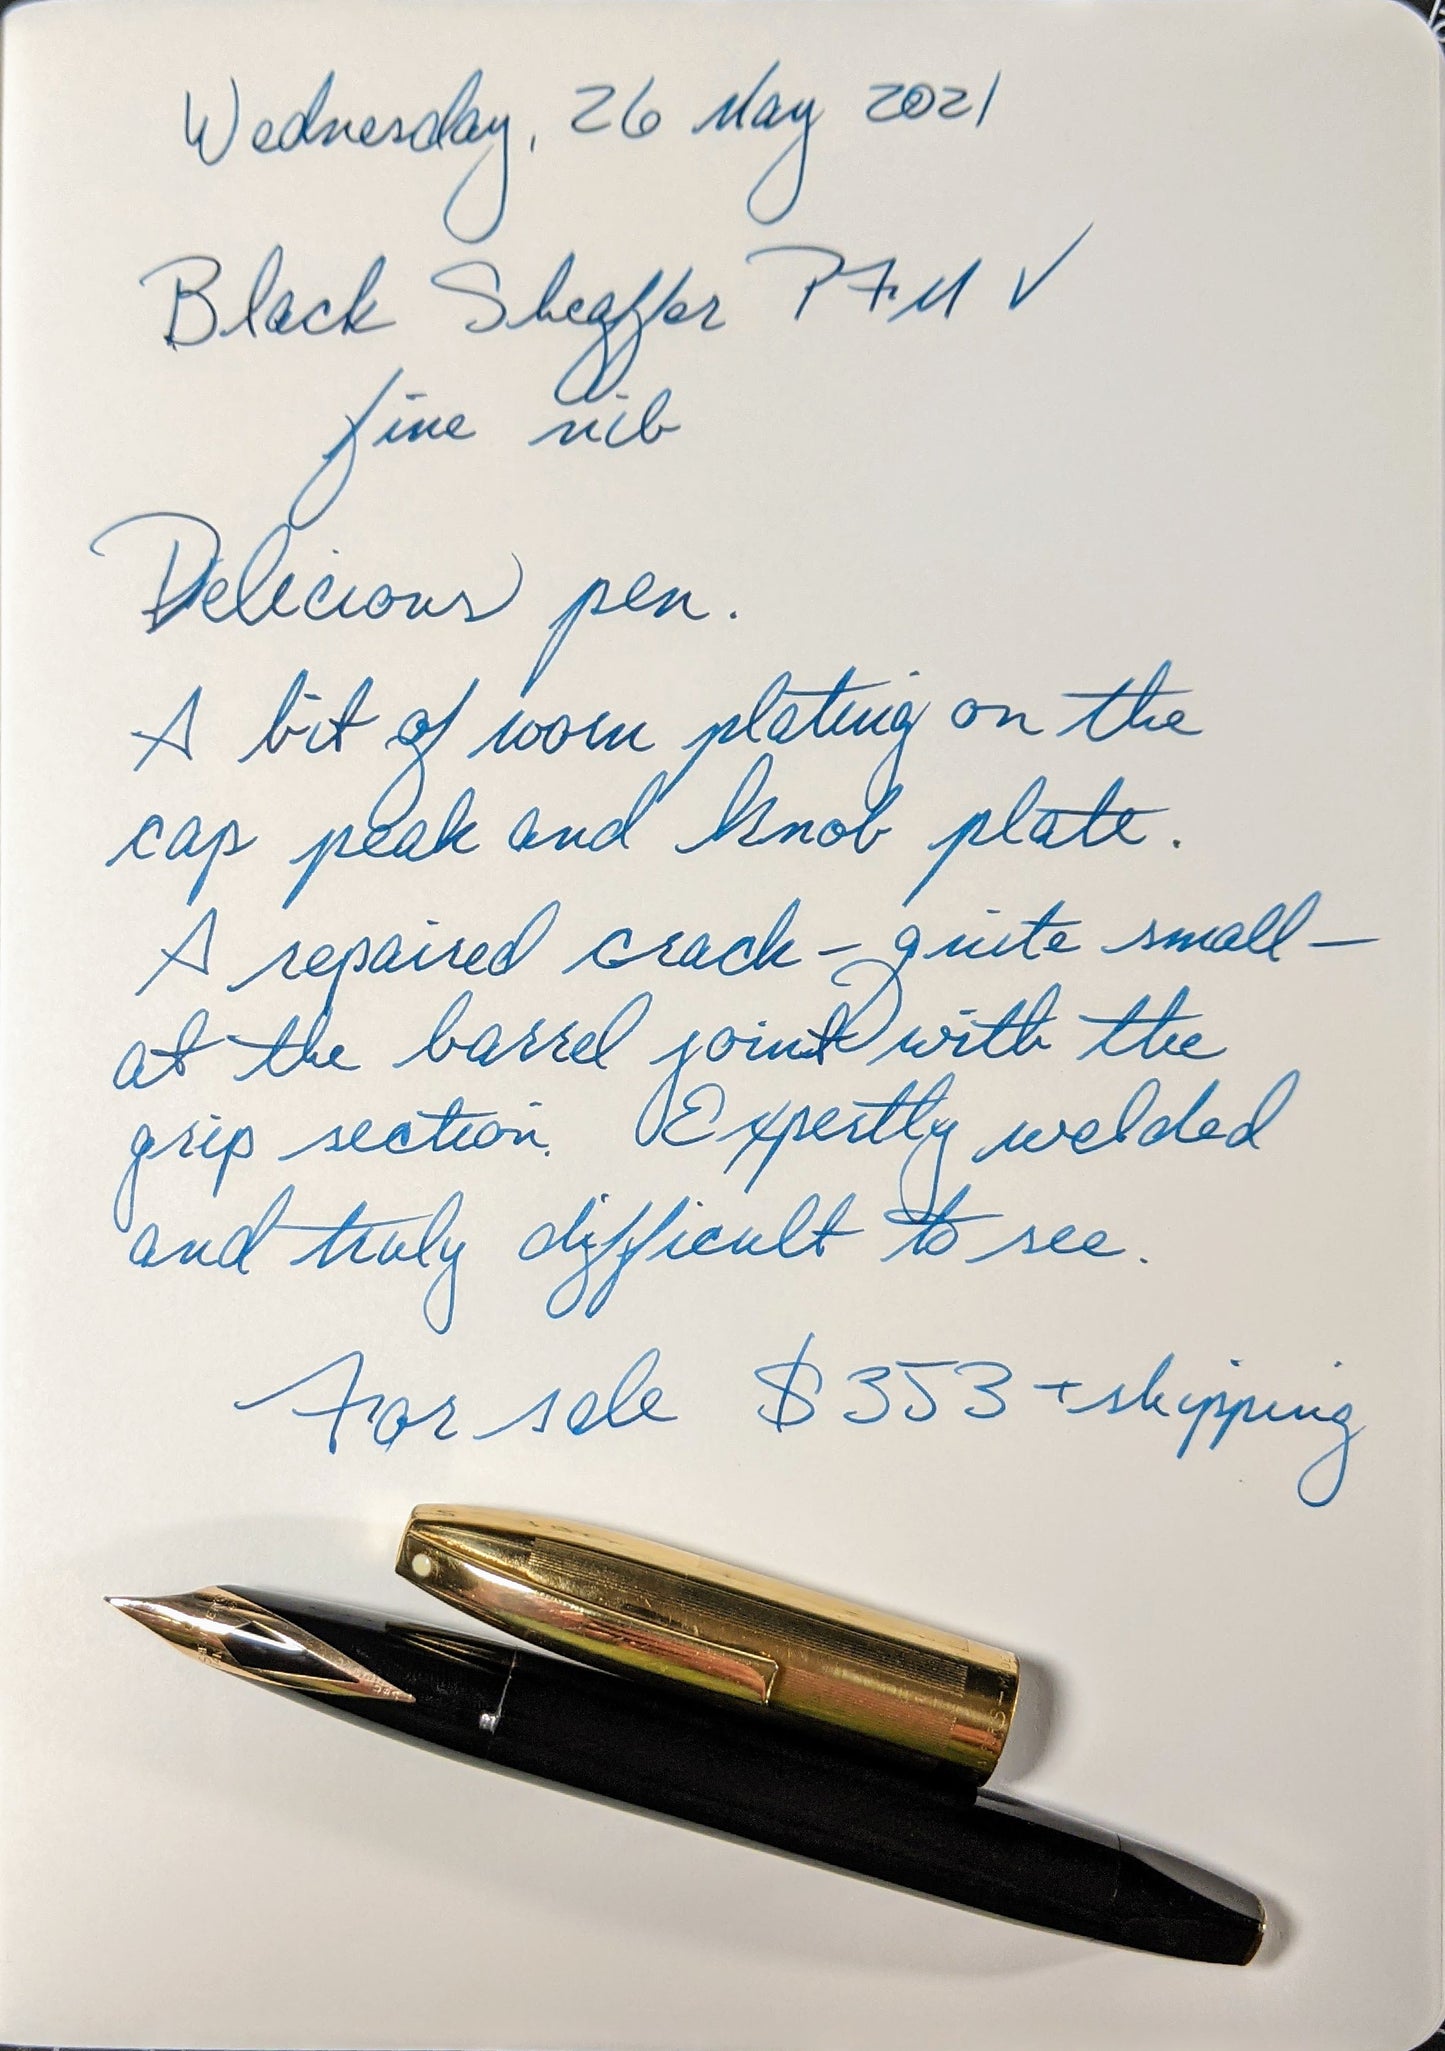 Wednesday, 26 May 2021
Black Sheaffer PFM V
fine nib
Delicious pen.
A bit of worn plating on the
cap peak and knob plate.
A repaired crack – quite small –
at the barrel joint with the
grip section. Expertly welded
and truly difficult to see.
For sale $353 + shipping